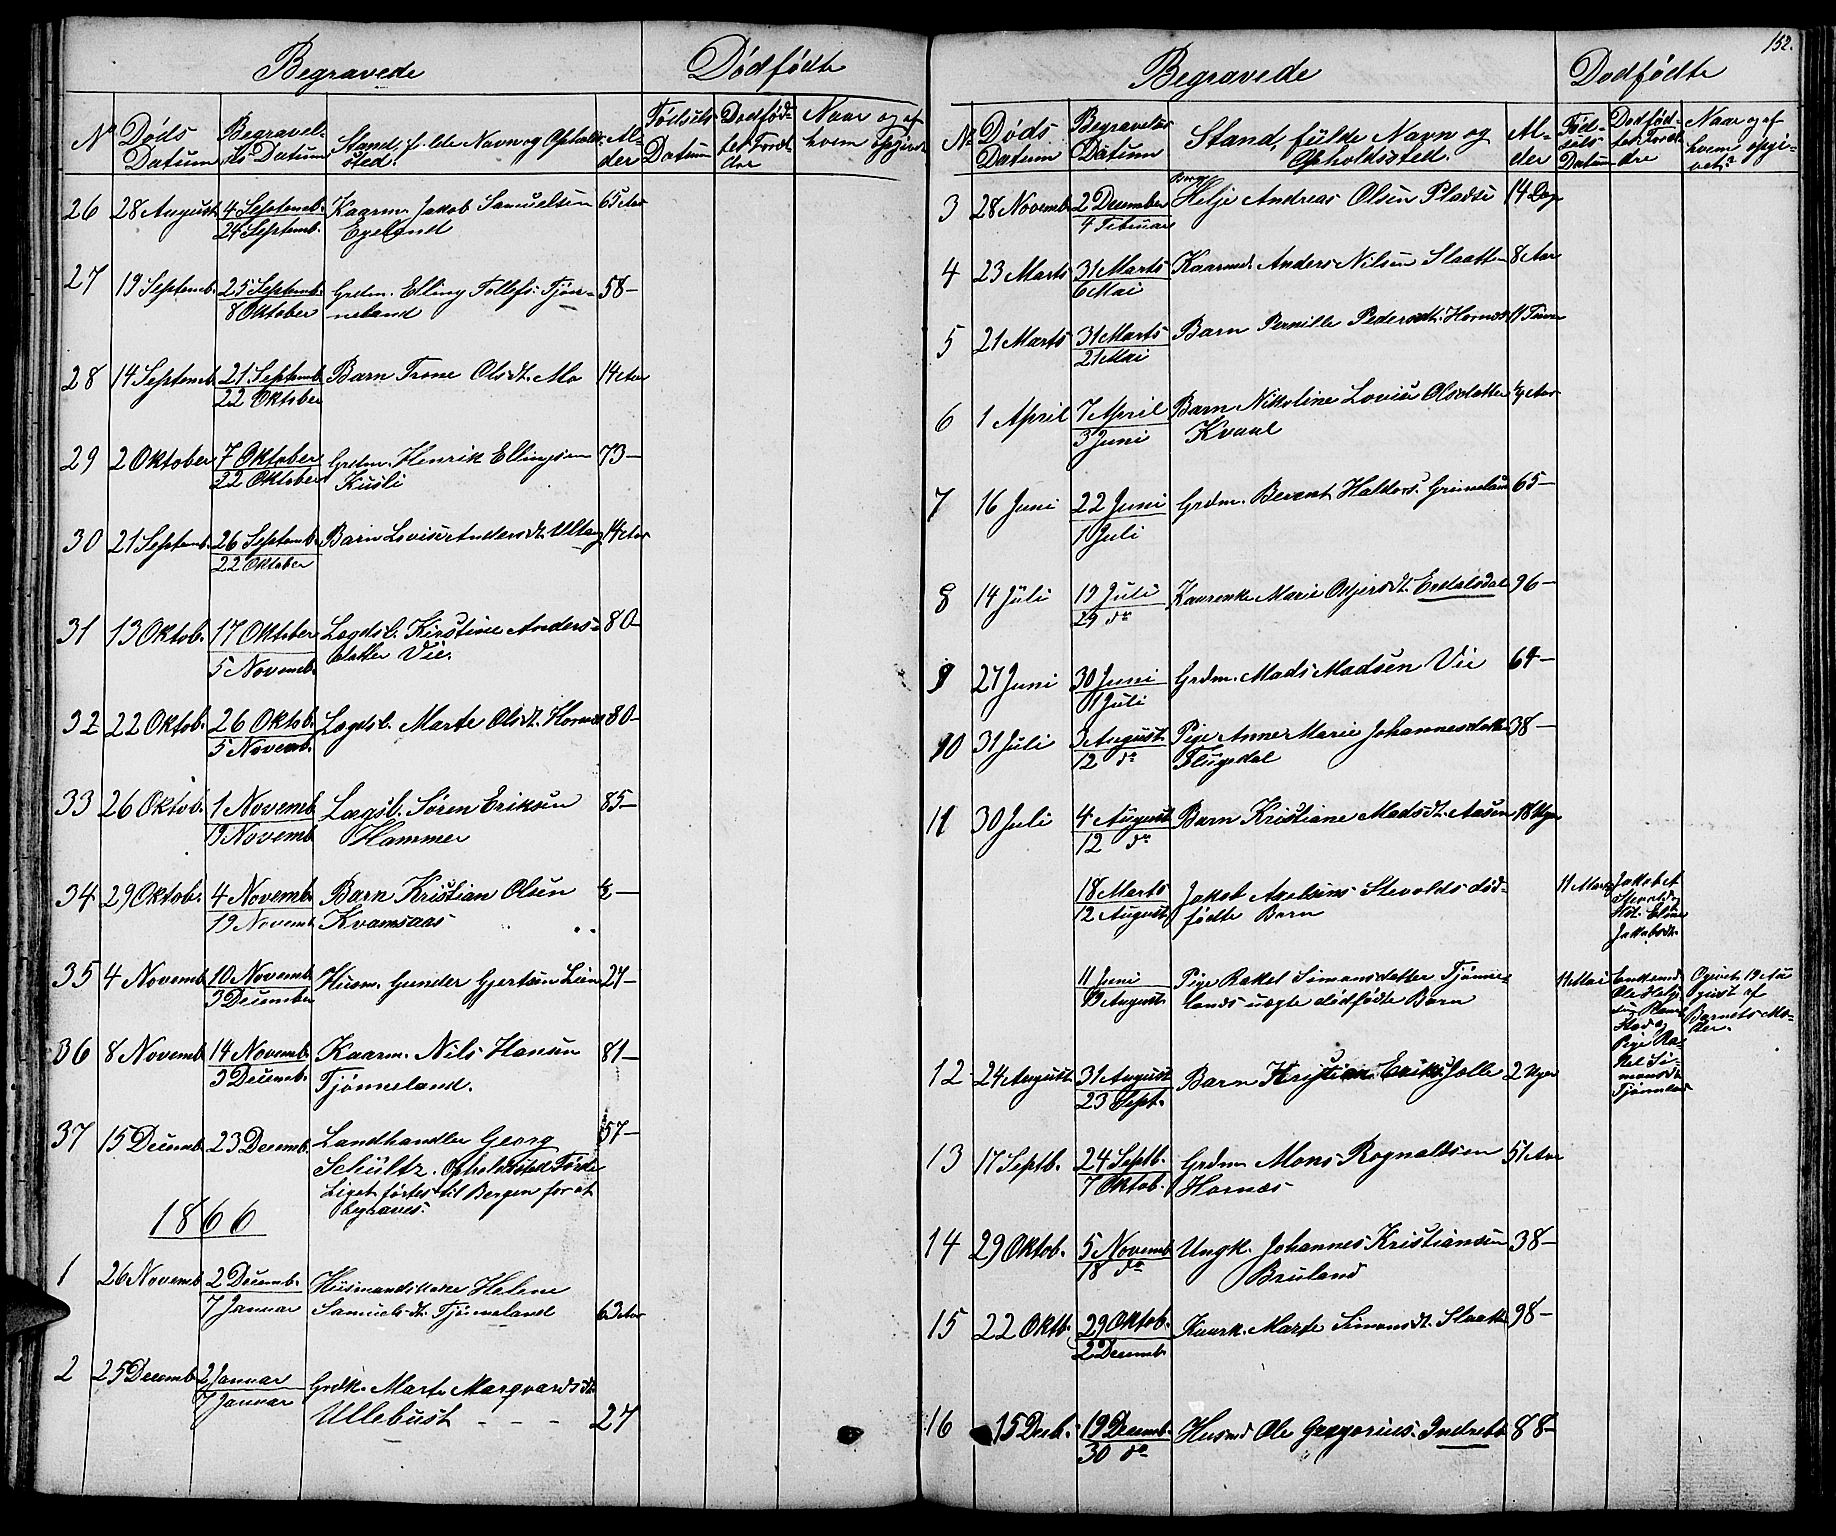 Begravede
Dødfødte
No Døds Datum
Begravelses Datum
Stand, fulde Navn og Opholdssted.
Alder
Fødsels Datum
Dødfødtes Forældre
Naar og af hvem opgivet
26 28 August 4 Septemb. 24 Septemb. Kaarm. Jakob Samuelsen Egeland 65 Aar
27 19 Septemb. 25 Septemb. 8 Oktober Grdm. Elling Tollefs. Tjønneland 58 —
28 14 Septemb. 21 Septemb. 22 Oktober Barn Trone Olsdt. Mo 14 Aar
29 2 Oktober 7 Oktober 22 Oktober Grdm. Henrik Ellingsen Kusli 73 —
30 21 Septemb. 26 Septemb. 22 Oktober Barn Lovise Andersdt. Ultang 14 Aar
31 13 Oktob. 17 Oktober 5 Novemb. Lægdsl. Kirstine Andersdatter Vie. 80 —
32 22 Oktob. 26 Oktob. 5 Novemb. Lægdsl. Marte Olsdt. Hornæs 80 —
33 26 Oktob. 1 Novemb. 19 Novemb. Lægsl. Søren Eriksen Hammer 85 —
34 29 Oktob. 4 Novemb. 19 Novemb. Barn Kristian Olsen Kvamsaas ½ —
35 4 Novemb. 10 Novemb. 3 Decemben Husm. Gunder Gjertsen Lien 27 —
36 8 Novemb. 14 Novemb. 3 Decemb. Kaarm. Nils Hansen Tjønneland. 81 —
37 15 Decemb. 23 Decemb. Landhandler Georg Schültz. Opholdssted Førde Liget førtes til Bergen for at begraves. 57 —
1866
1 26 Novemb. 2 Decemb. 7 Januar Huusmandskone Helene Samuelsdt. Tjønneland 63 Aar
2 25 Decemb. 2 Januar 7 Januar Grdk. Marte Marqvardsdt. Ullebust - - - 27
152.
Begravede
Dødfødte
No Døds Datum
Begravelses Datum
Stand, fulde Navn og Opholdssted.
Alder
Fødsels Datum
Dødfødtes Forældre
Naar og af hvem opgivet
3 28 Novemb. 2 December 4 Februar Barn Helje Andreas Olsen Pladsen 14 Dage
4 23 Marts 31 Marts 6 Mai Kaarmd. Anders Nilsen Slaatte 8 Aar
5 21 Marts 31 Marts 21 Mai Barn Pernille Pedersdt. Hornæs 11 Timer
6 1 April 7 April 3 Juni Barn Nikoline Lovise Olsdatter Kvaal ¼ Aar
7 16 Juni 22 Juni 1 Juli Grdm. Berent Haldors. Grimeland 65 —
8 14 Juli 19 Juli 29 do Kaarenke Marie Asgersdt. Erdalsdal 96 —
9 27 Juni 30 Juni 11 Juli Grdm. Mads Madsen Vie 64 —
10 31 Juli 3 August 12 do Pige Anne Marie Johannesdatter Flugedal 38 —
11 30 Juli 4 August 12 do Barn Kristiane Madsdt. Aasen 18 Uger
18 Marts 12 August Jakob Axelsens Stevolds dødfødte Barn 11 Marts Jakob A Stevold Hst. Eline Jakobsdt.
11 Juni 19 August Pige Rakel Simonsdatter Tjønnelands uægte dødfødte Barn 11 Mai Enkemd. Ole Helje Pige Rakel Simonsdt. Tjønneland Opgivet 19 August af Barnets Moder.
12 24 August 31 August 23 Sept. Barn Kristian Eriks. Sølle 2 Uger
13 17 Septb. 24 Septb. 7 Oktob. Grdm. Mons Rognaldsen Hornæs 51 Aar
14 29 Oktob. 5 Novemb. 18 do Ungk. Johannes Kristiansen Bruland 38 —
15 22 Oktb. 29 Oktob. 2 Decemb. Kaark. Marte Simonsdt. Slaatte 98 —
16 15 Decb. 19 Decemb. 30 do Husmd Ole Gregorius. Indrebø 88 —